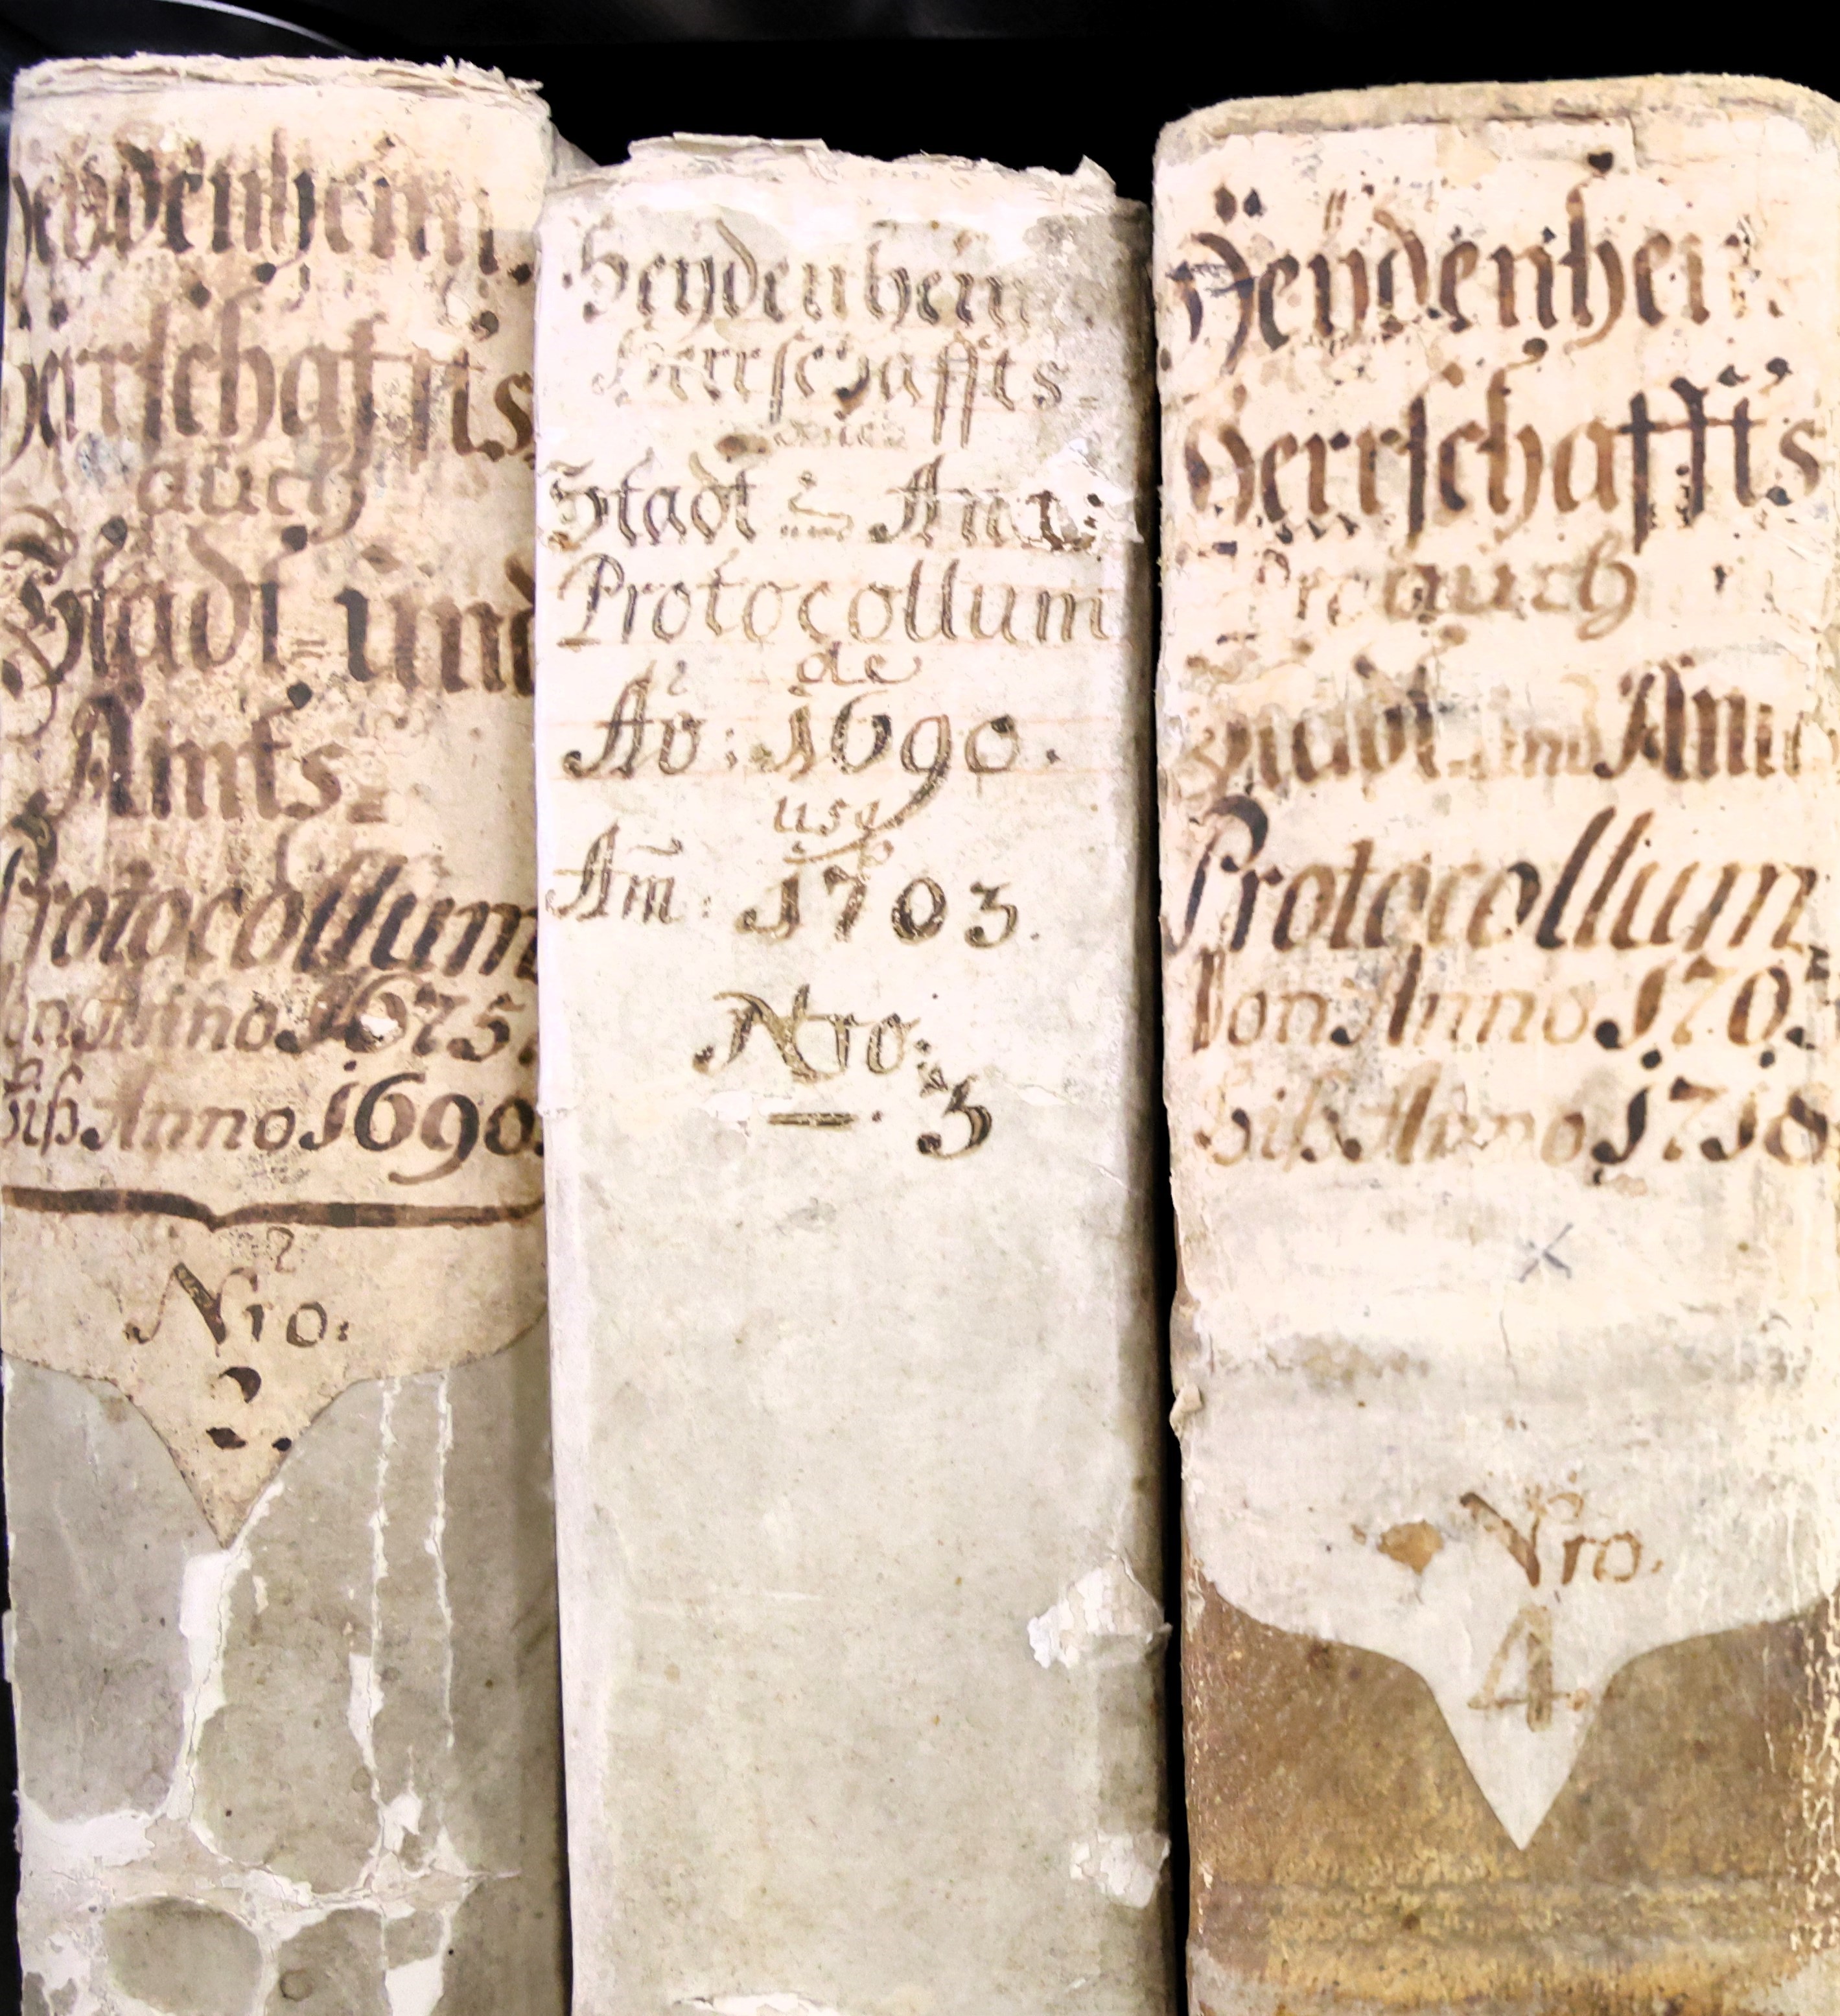 Heydenheim.
Herrschaffts
auch
Stadt= und
Amts=
Protocollum
Von Anno 1675.
biß Anno 1690.
Nro:
2.
Heydenheim
Herrschaffts=
auch
Stadt und Amts
Protocollum
de
Ao: 1690.
usq
Añ: 1703.
Nro:
3
Heÿdenheim
Herrschaffts
auch
Stadt und Amts
Protocollum
Von Anno 1703
biß Anno 1718
Nro.
4.